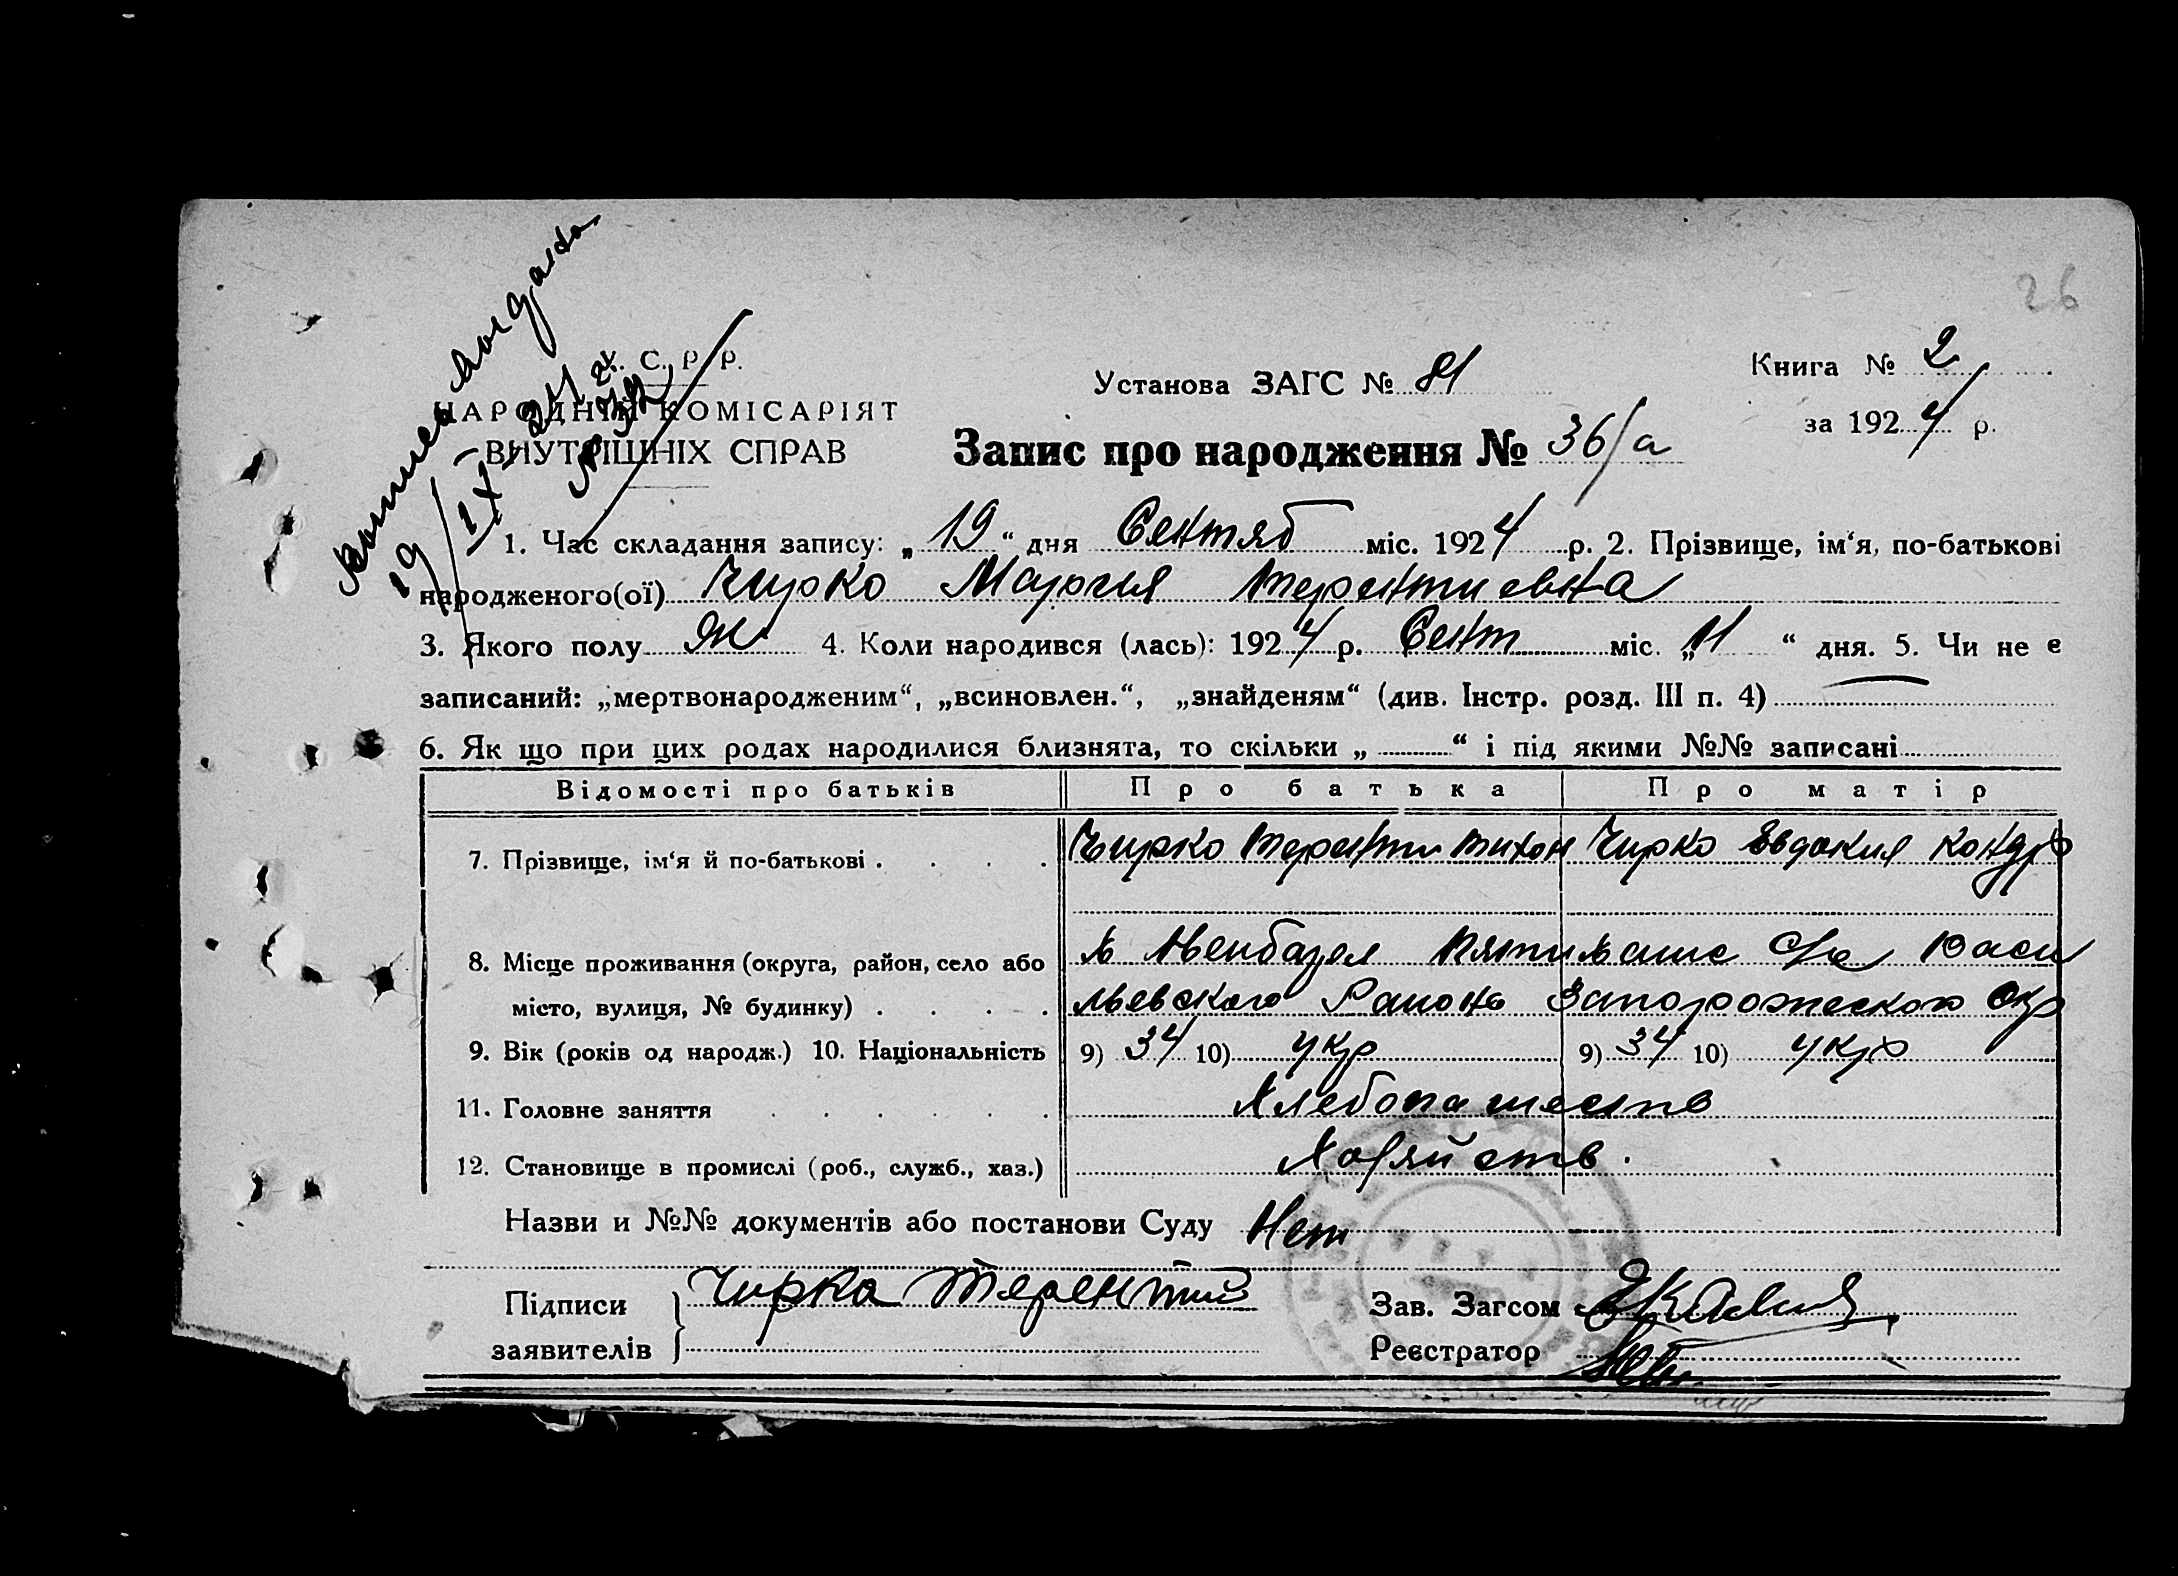 26
У. С. Р. Р.
НАРОДНІЙ КОМІСАРІЯТ
ВНУТРІШНІХ СПРАВ
19/IX-24
Установа ЗАГС № 81
Книга № 2
за 1924 р.
Запис про народження № 36/а
1. Час складання запису: „19“ дня Сентяб міс. 1924 р. 2. Прізвище, ім‘я, по-батькові
народженого(ої) Чирко Мария Терентиевна
3. Якого полу Ж. 4. Коли народився (лась): 1924 р. Сент міс. „11“ дня. 5. Чи не є
записаний: „мертвонародженим“, „всиновлен.“, „знайденям“ (див. Інстр. розд. III п. 4) —
6. Як що при цих родах народилися близнята, то скільки „ “ і під якими №№ записані
Відомості про батьків Про батька Про матір
7. Прізвище, ім‘я й по-батькові . . . . Чирко Теренти Тихон Чирко Евдокия Кондр
8. Місце проживання (округа, район, село або
місто, вулиця, № будинку) . . . . льевского Района Запорожеского Окр
9. Вік (років од народж.) 10. Національність 9) 34 10) укр 9) 34 10) укр
11. Головне заняття . . . . . . Хлебопашеств
12. Становище в промислі (роб., служб., хаз.) Хозяйств.
Назви и №№ документів або постанови Суду Нет
Підписи Чирка Терентий Зав. Загсом
заявителів Реєстратор